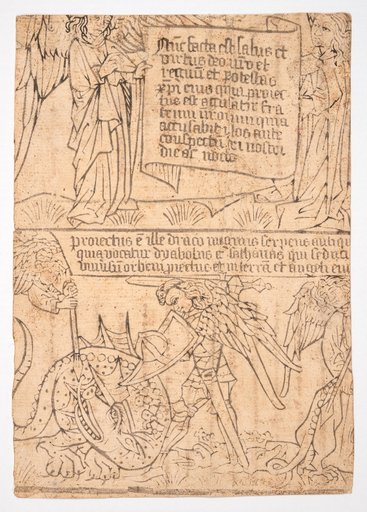 Nūc facta est salus et
virtus deo nr̄o et
regnū et potestas
xp̄i eius quia proiec
tus est accusator fra
trum nr̄orum qui
accusabat illos ante
conspectū dei nostri
die ac nocte
proiectus ē ille draco magnus serpens antiqu
qui vocatur dyabolus et sathanas qui seduci
universū orbem et in terrā et angeli eiu